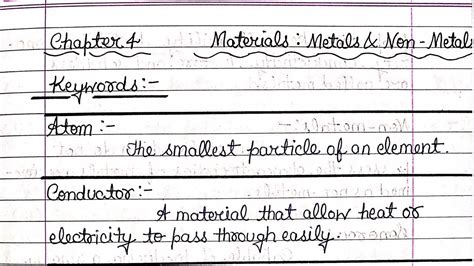 Chapter 4 Materials: Metals & Non-Metals
Keywords:-
Atom:-
The smallest particle of an element.
Conductor:-
A material that allow heat or
electricity to pass through easily.